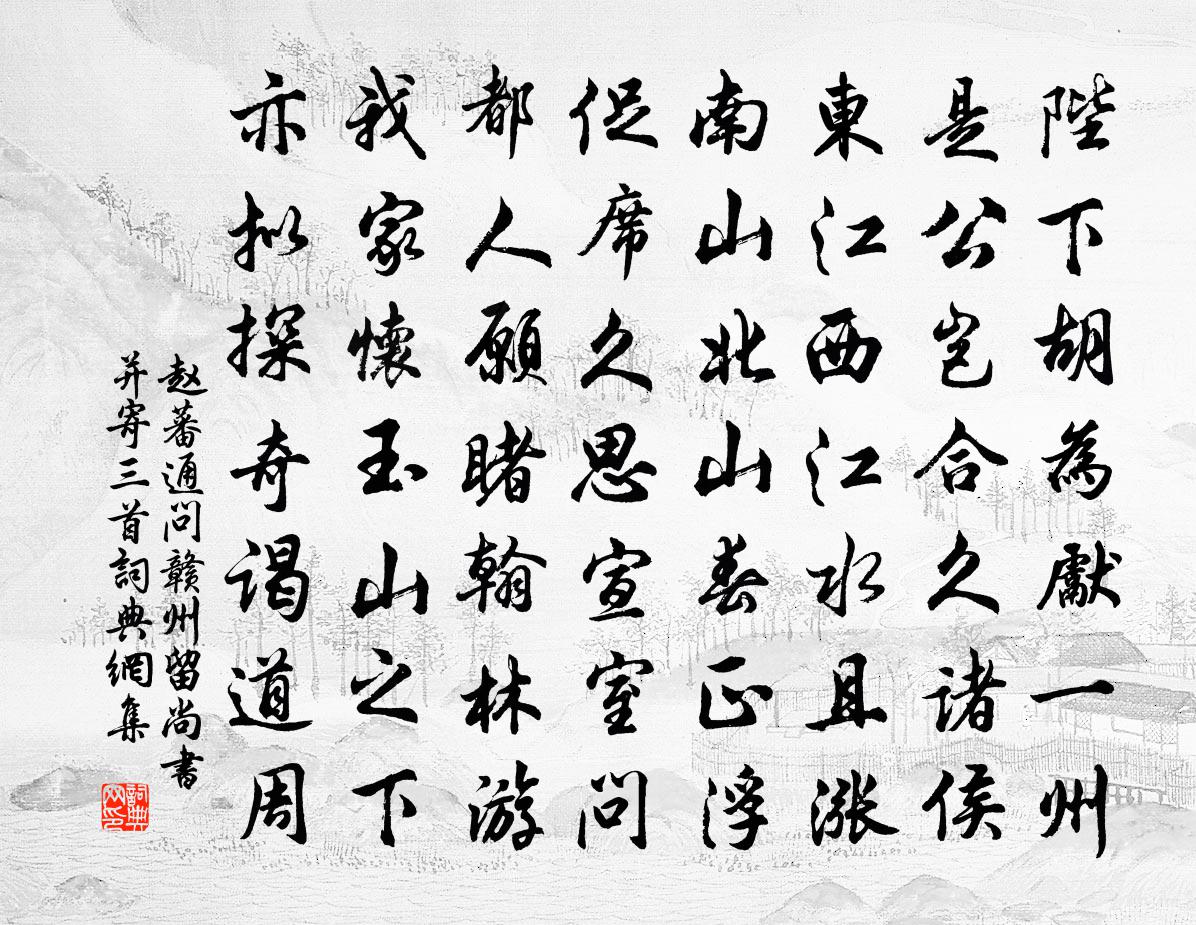 陛下胡為獻一州
是公豈合久諸侯
東江西江水且漲
南山北山春正浮
促席久思宣室問
都人願睹翰林游
我家懷玉山之下
亦拟探奇謁道周
赵蕃通問贛州留尚書
并寄三首詞典網集
詞典网印